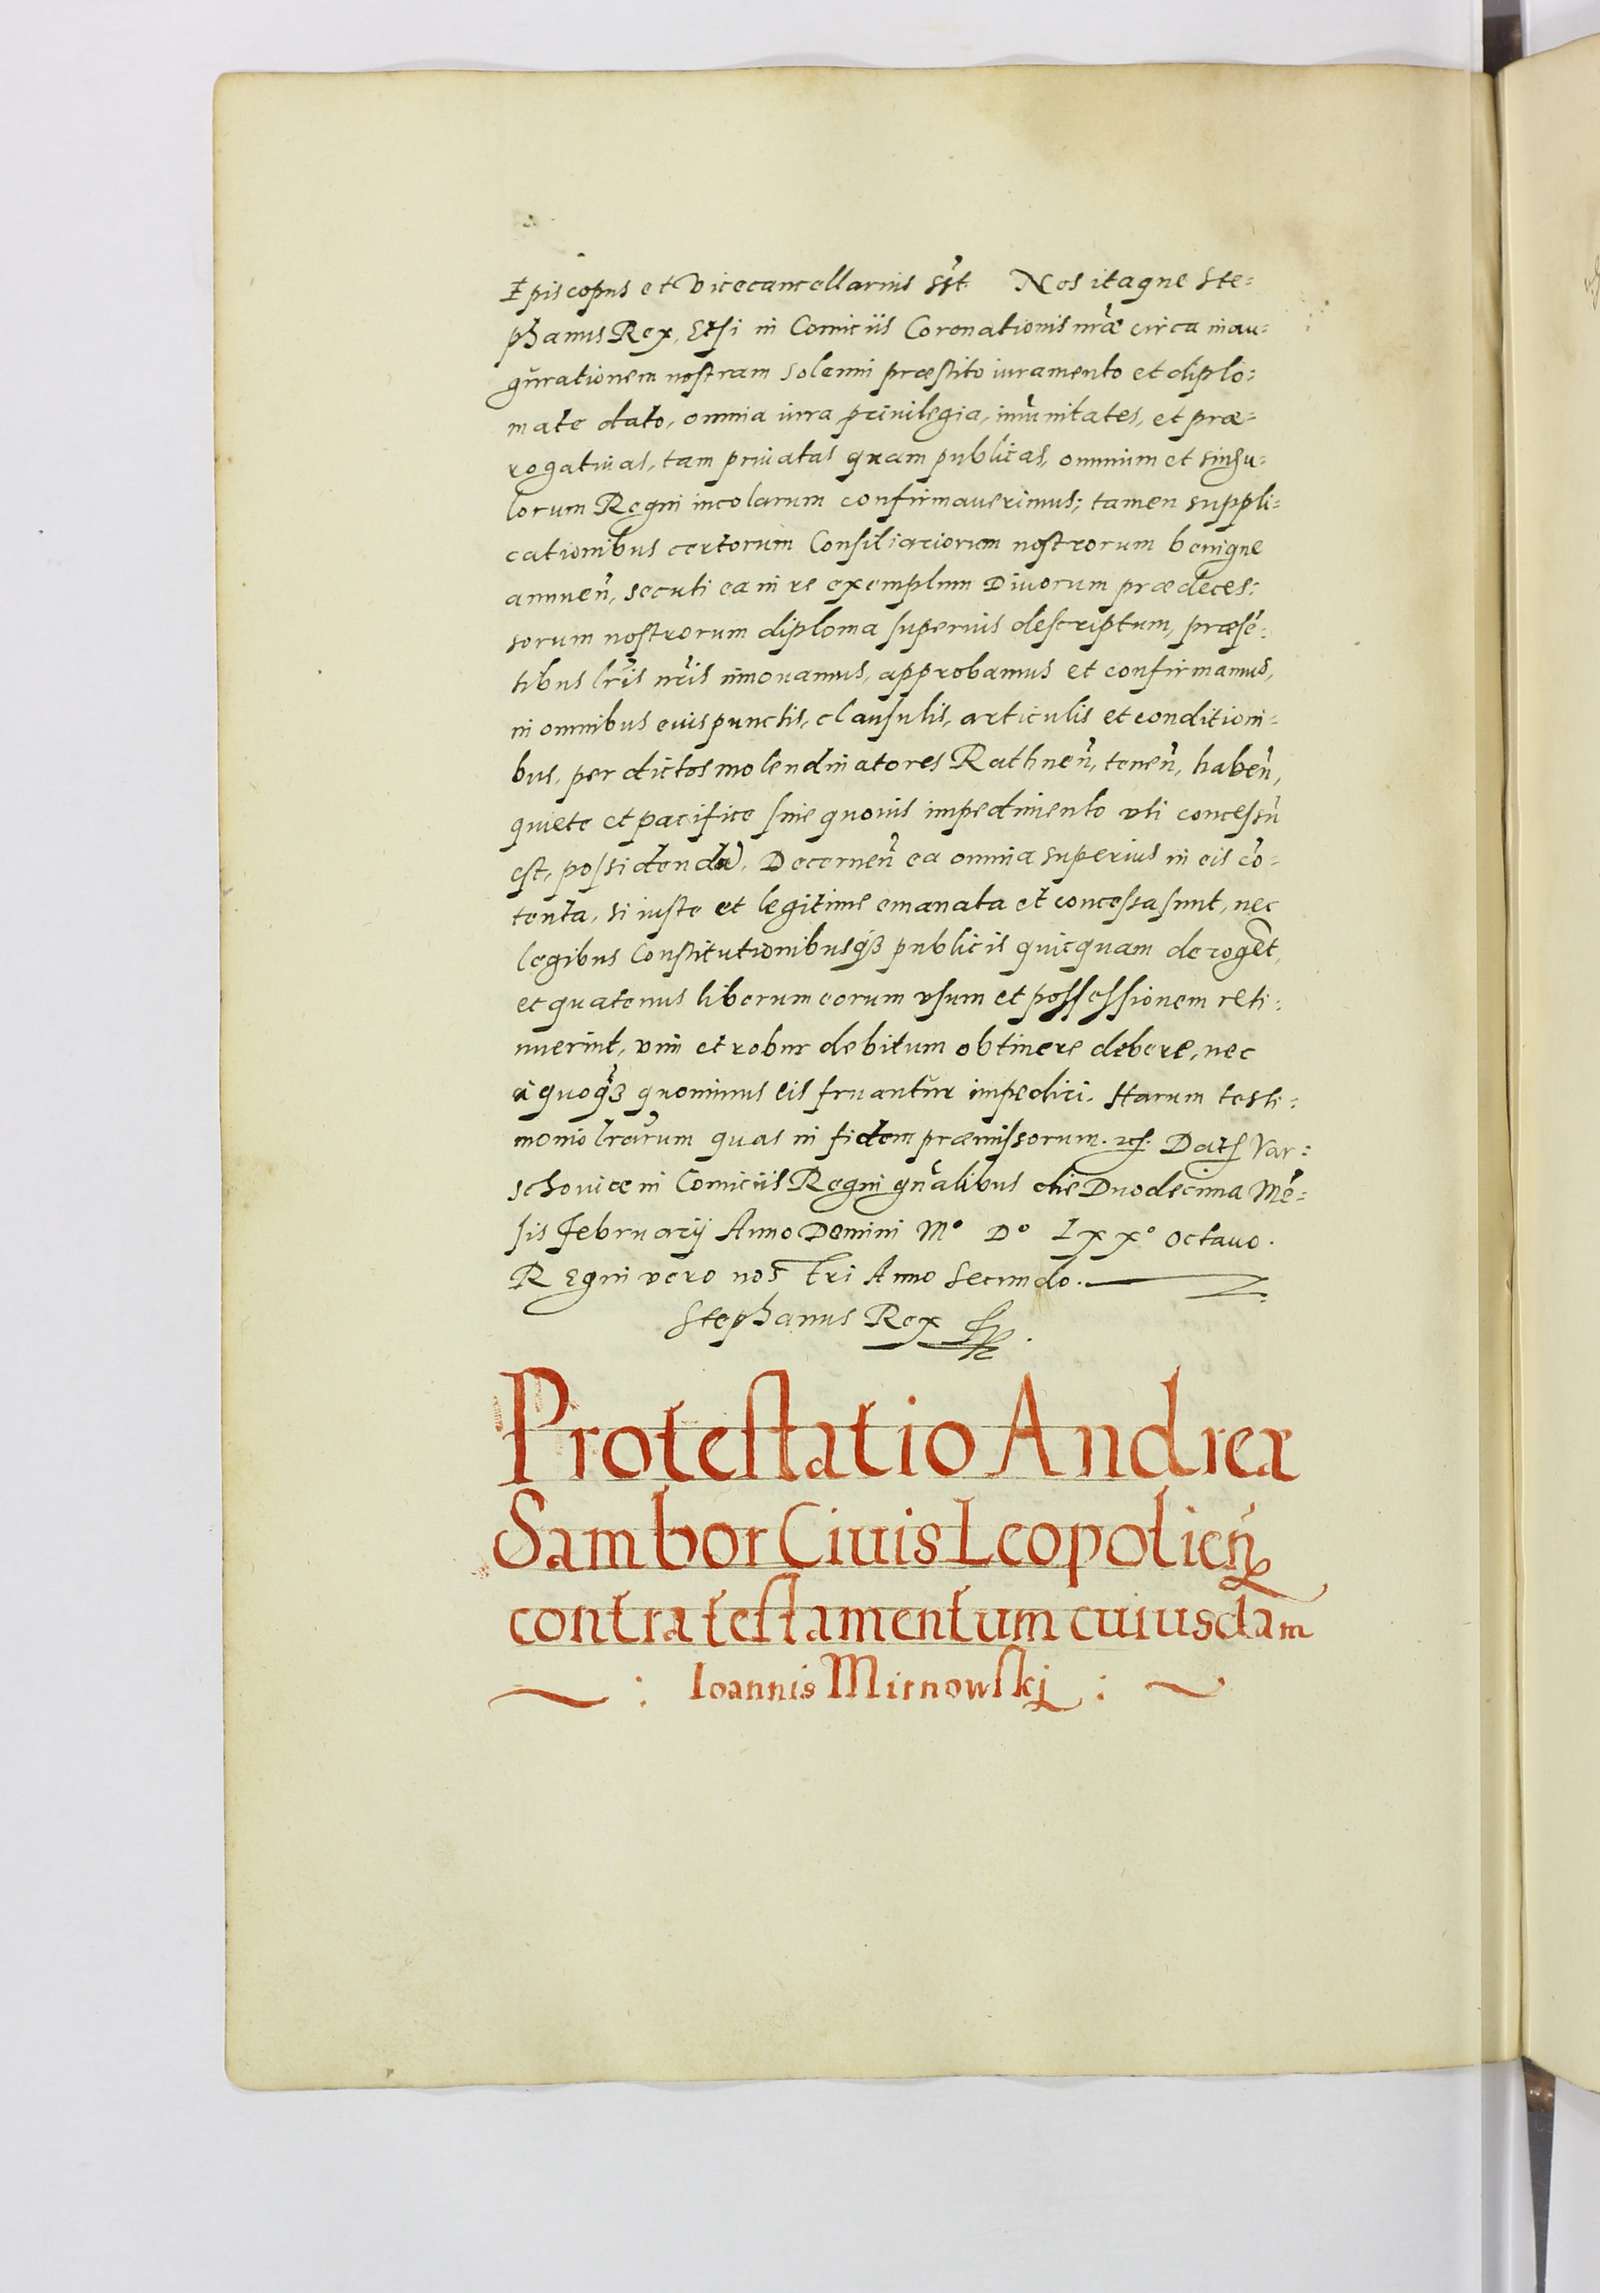 Episcopus et Vicecancellarius sst. Nos itaque Ste=
phanus Rex, Etsi in Comiciis Coronationis nrae circa inau=
gurationem nostram solenni praestito iuramento et diplo=
mate dato, omnia iura privilegia, imunitates, et prae=
rogatiuas, tam priuatas quam publicas, omnium et singu=
lorum Regni incolarum confirmauerimus; tamen suppli=
cationibus certorum Consiliariorum nostrorum benigne
annuen, secuti ea in re exemplum Diuorum praedeces=
sorum nostrorum diploma superius descriptum, praesē=
tibus lris nris innouamus, approbamus et confirmamus,
in omnibus euis punctis, clausulis, articulis et condition=
bus, per dictos molendinatores Rathnen, tenen, haben,
quiete et pacifice sine quouis impedimento vti concessū
est, possidenda). Decernen ea omnia superius in eis cō=
tenta, si iuste et legitime emanata et concessa sunt, nec
legibus Constitutionibusqȝ publicis quicquam deroget,
et quatenus liberum eorum vsum et possessionem reti=
nuerint, vim et robur debitum obtinere debere, nec
a quoqȝ quominus eis fruantur impediri. Harum testi=
monio lrarum quas in fidem praemissorum. etc. Dat Var=
schouiae in Comiciis Regni gnalibus die Duodecima Mē=
sis februarij Anno Domini Mo Do Lxxo octauo.
Regni vero nostri Anno Secundo.
Stephanus Rex
Protestatio Andreæ
Sambor Ciuis Leopolien
contra testamentum cuiusdam
: Ioannis Mirnowskj :